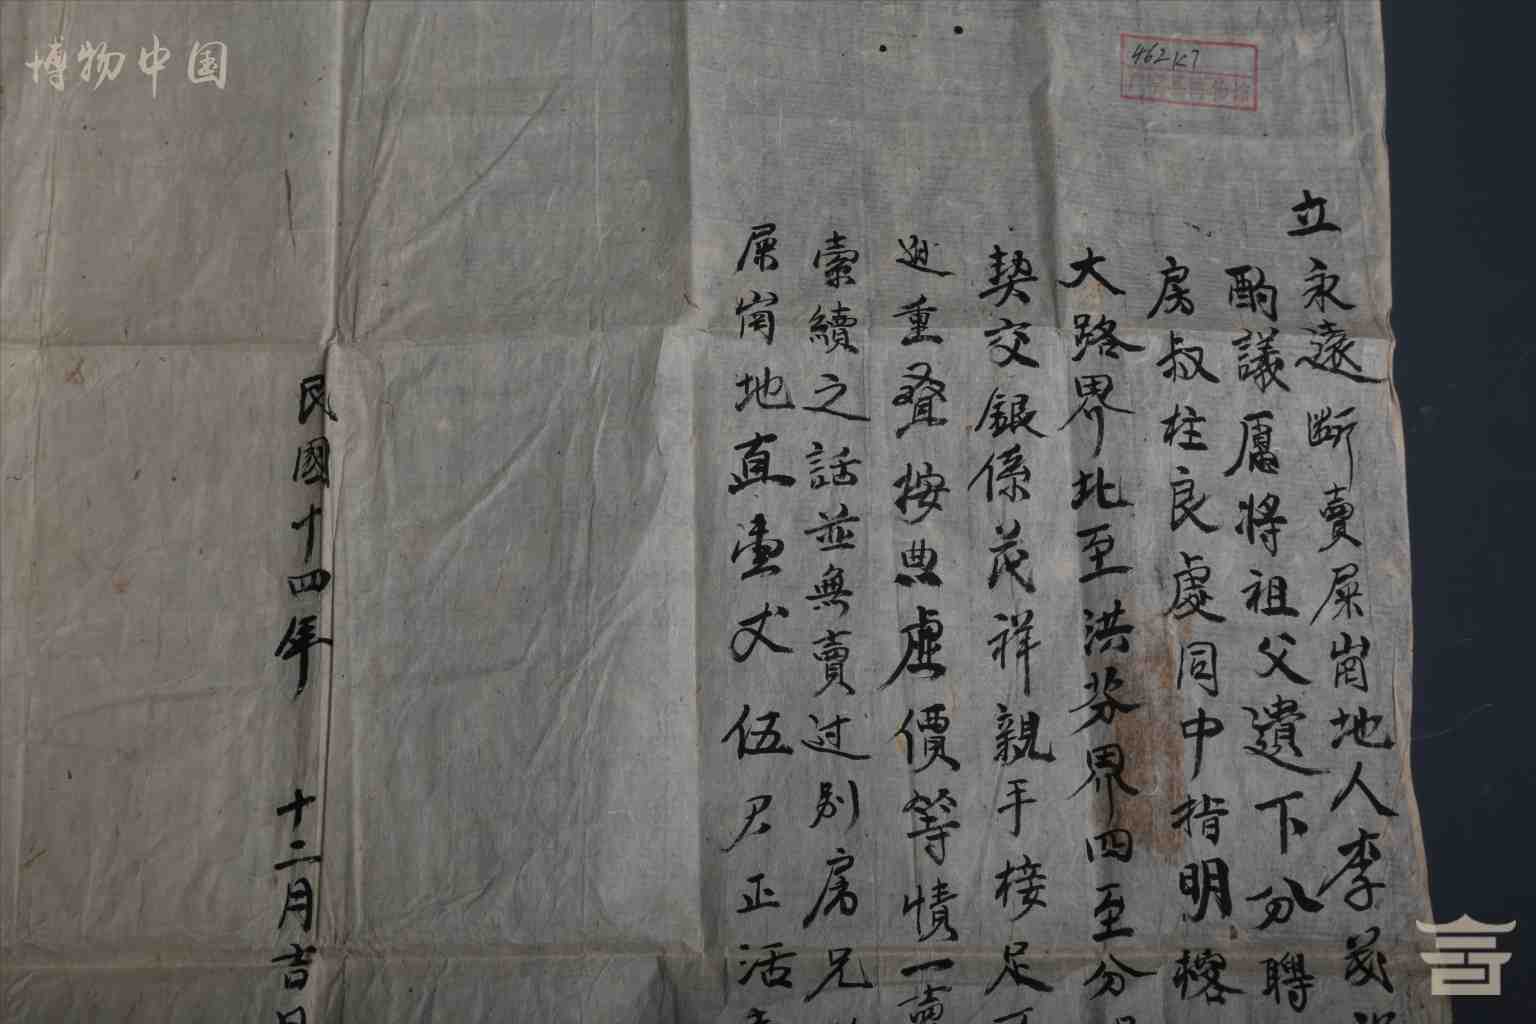 立永遠斷賣屎崗地人李茂祥
酌議願將祖父遺下分
房叔柱良處同中指明
大路界北至洪芬界四至分
契交銀係茂祥親手接足
迯重疊按典虛價等情一賣
索續之話並無賣过別房兄
屎崗地直壹丈伍尺正活
民國十四年 十二月吉日
462 K7
博物中国